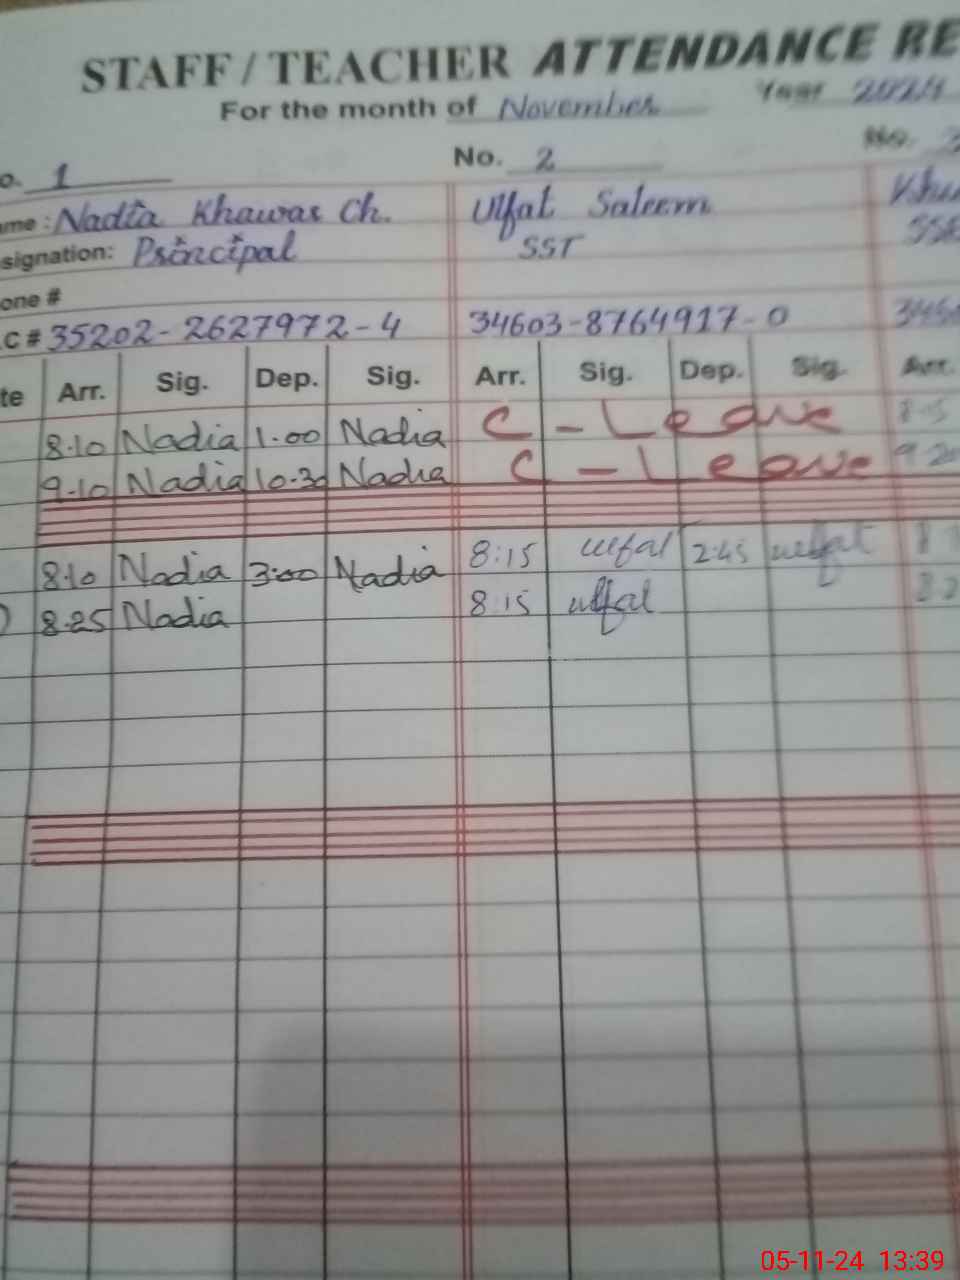 STAFF / TEACHER ATTENDANCE RE
For the month of November Year 2024
o. 1 No. 2 No.
ame: Nadia Khawar Ch. Ulfat Saleem
signation: Principal SST
one #
.C # 35202-2627972-4 34603-8764917-0
te Arr. Sig. Dep. Sig. Arr. Sig. Dep. Sig. Arr.
8.10 Nadia 1.00 Nadia C - Leave
9.10 Nadia 10.30 Nadia C - Leave
8.10 Nadia 3:00 Nadia 8:15 ulfat 2:45 ulfat
8.25 Nadia 8:15 ulfat
05-11-24 13:39